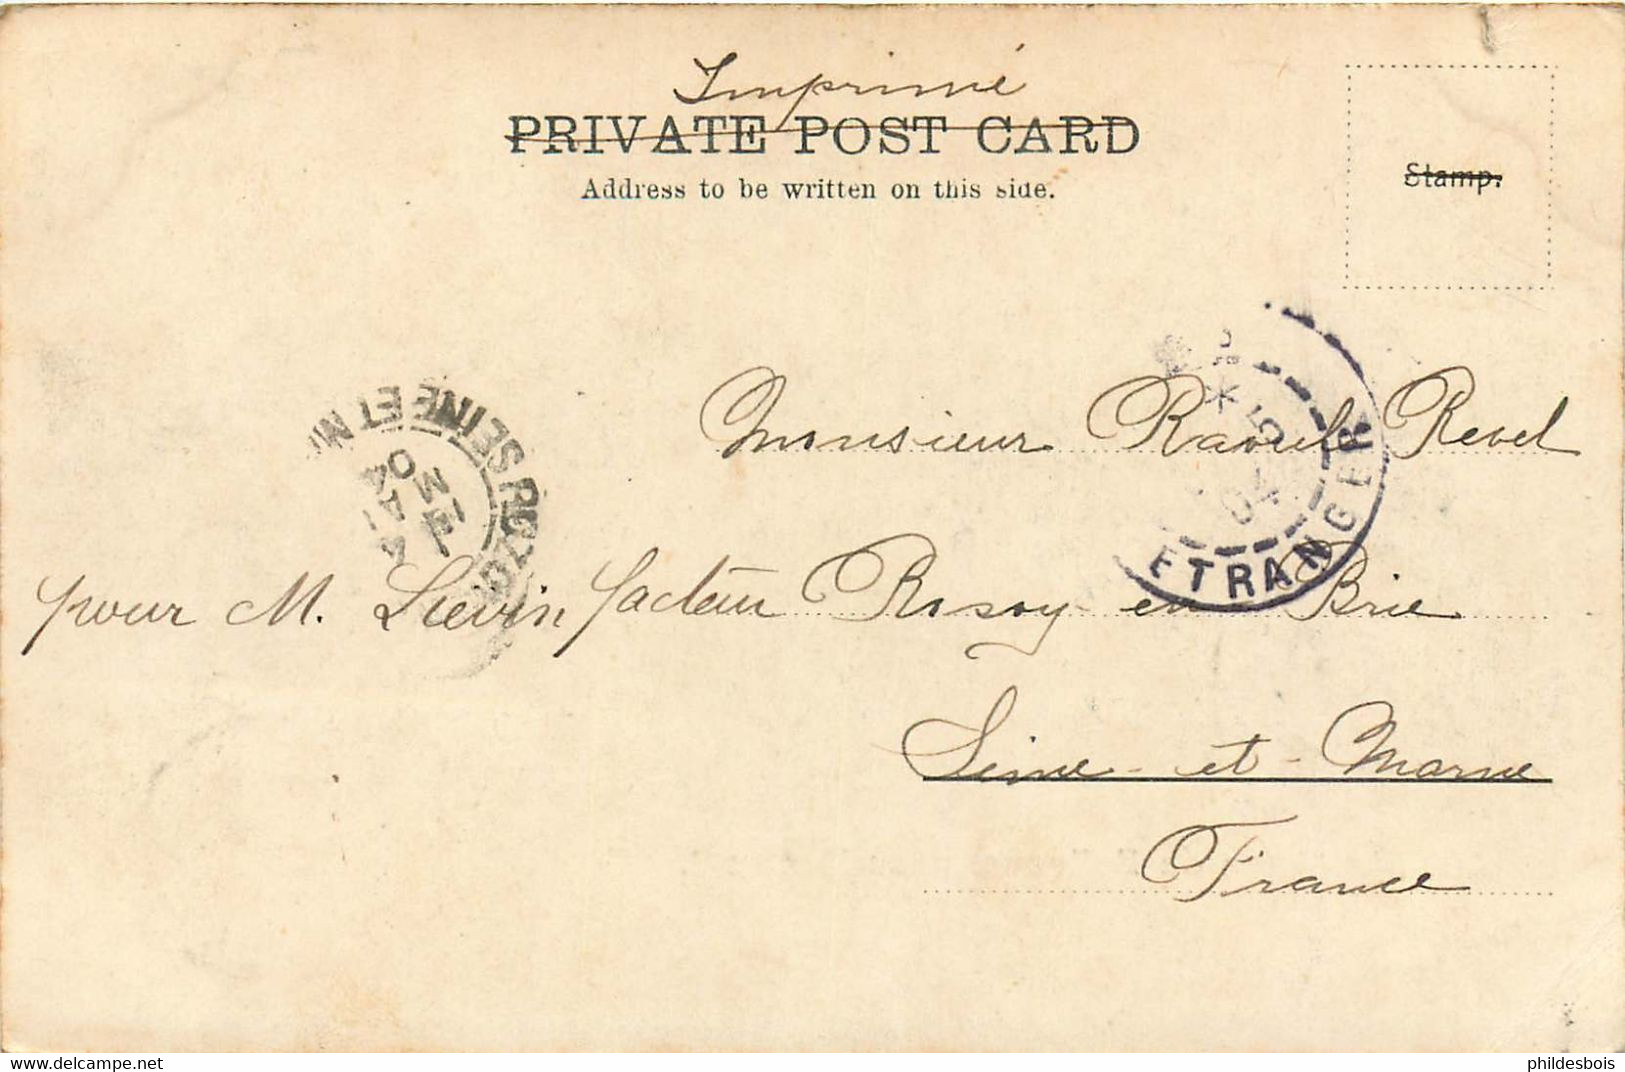 Imprimé
PRIVATE POST CARD
Address to be written on this side.
Stamp.
Monsieur Raoul Revel
pour M. Lievin facteur Rosoy en Brie
Seine-et-Marne
France
ETRANGER
5
04
SEINE ET M
ROZOY
4
MAI
04
phildesbois